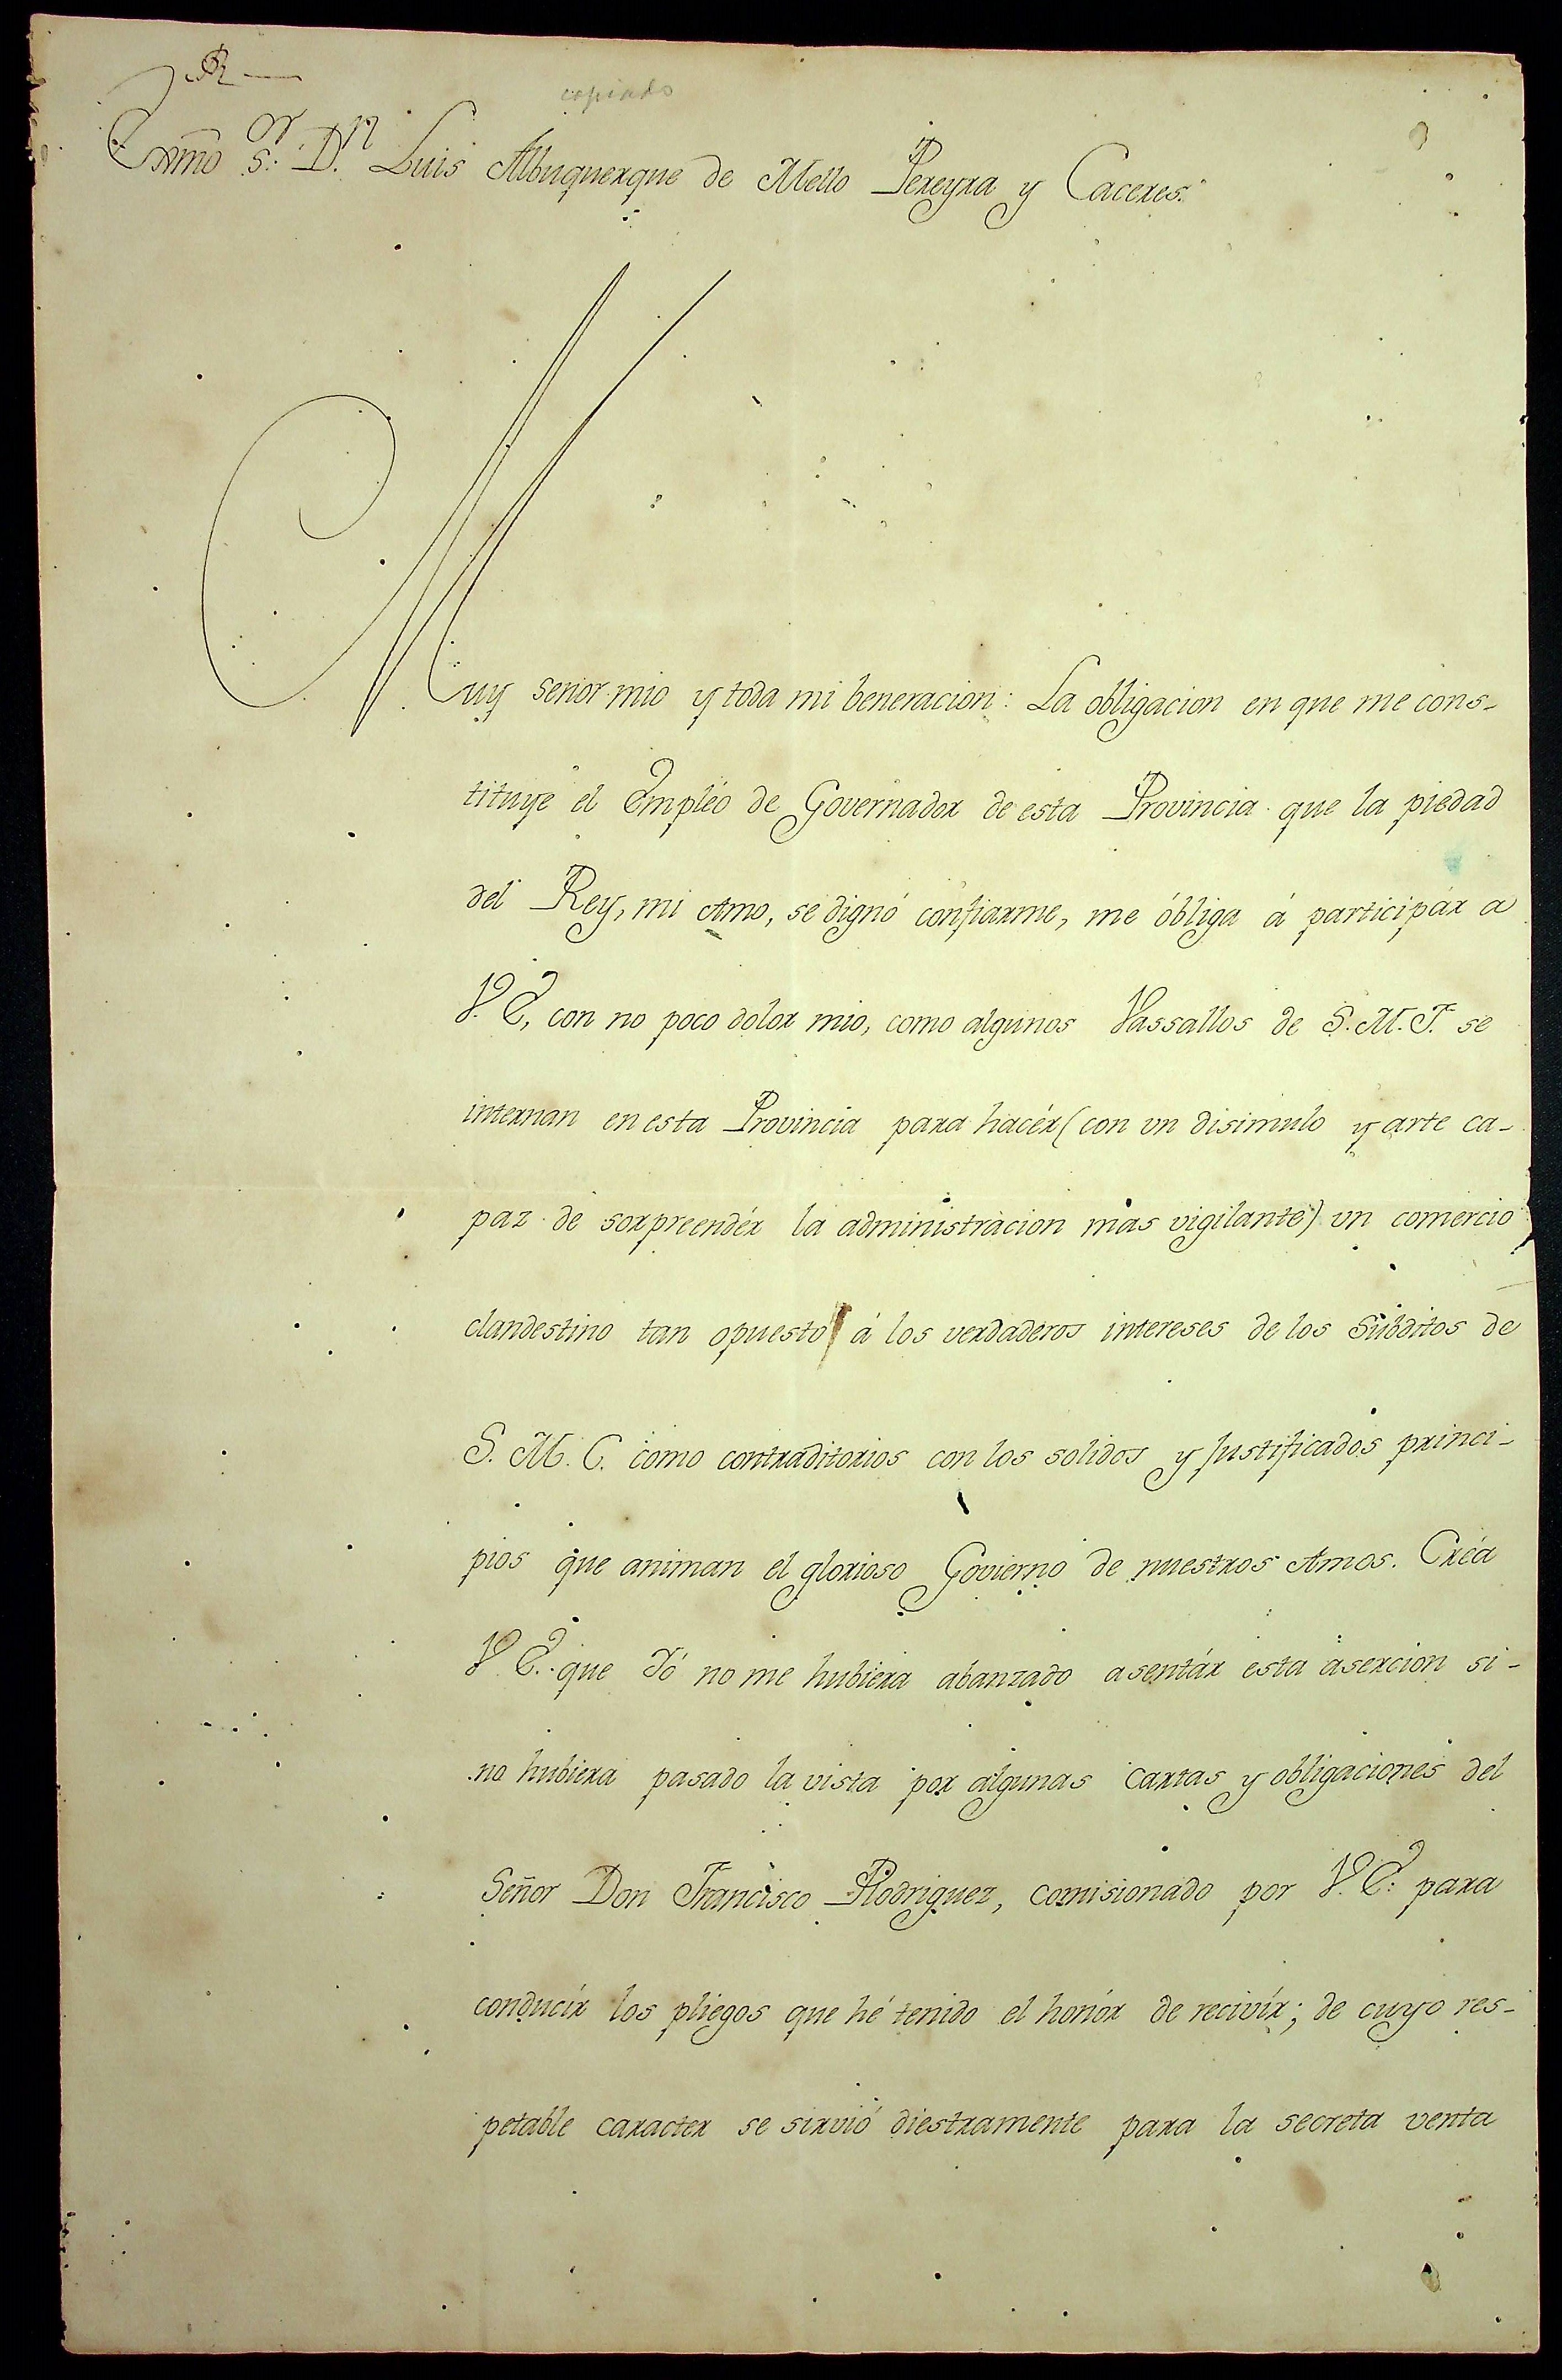 R
copiado
Exmo S.or D.n Luis Albuquerque de Mello Pereyra y Caceres.
Muy señor mio y toda mi beneracion: La obligacion en que me cons-
tituye el Empléo de Governador de esta Provincia que la piedad
del Rey, mi Amo, se dignó confiarme, me óbliga á participár a
V. E, con no poco dolor mio, como algunos Vassallos de S. M. F. se
internan en esta Provincia para hacér (con un disimulo y arte ca-
paz de sorpreendér la administracion mas vigilante) un comercio
clandestino tan opuesto á los verdaderos intereses de los Subditos de
S. M. C. como contraditorios con los solidos y justificados princi-
pios que animan el glorioso Govierno de nuestros Amos. Créa
V. E. que Yó no me hubiera abanzado asentár esta asercion si-
no hubiera pasado la vista por algunas cartas y obligaciones del
Señor Don Francisco Rodriguez, comisionado por V. E. para
conducír los pliegos que hé tenido el honór de recivír; de cuyo res-
petable caracter se sirvió diestramente para la secreta venta